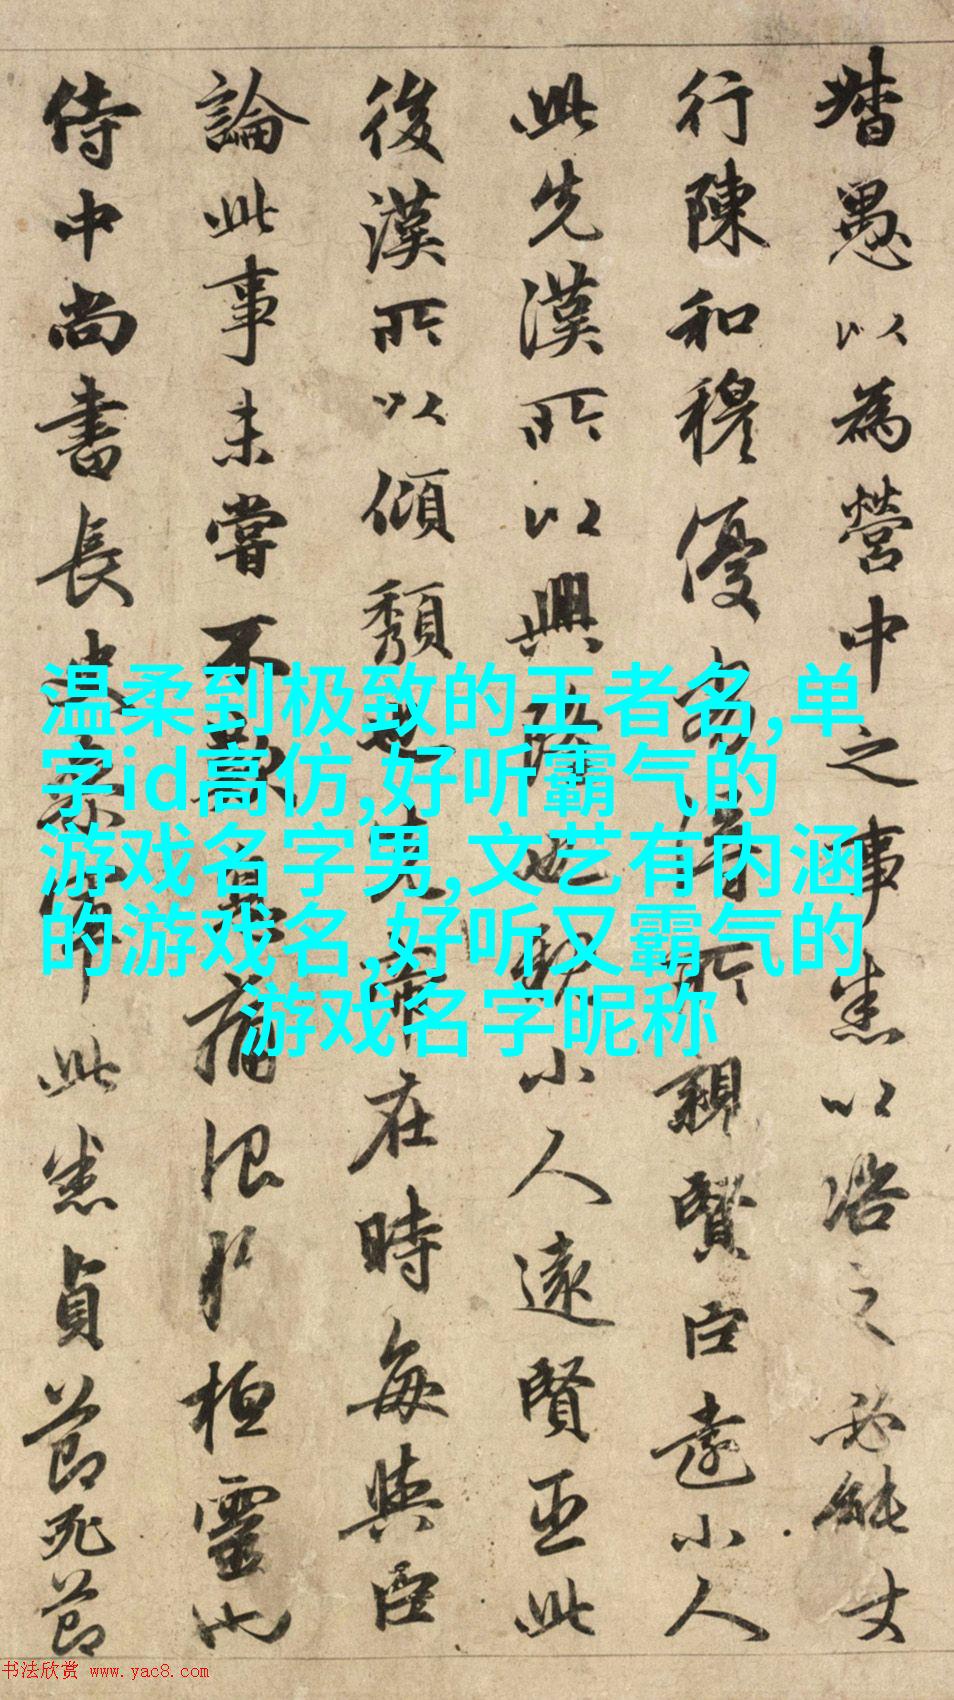 督愚以為營中之事悉以咨之必能使
行陳和穆優劣得所親賢臣遠小人
此先漢所以興隆也親小人遠賢臣此
後漢所以傾頹也先帝在時每與臣
論此事未嘗不歎息痛恨於桓靈也
侍中尚書長史參軍此悉貞節死節
温柔到极致的王者名,单
字id高仿,好听霸气的
游戏名字男,文艺有内涵
的游戏名,好听又霸气的
游戏名字昵称
书法欣赏 www.yac8.com